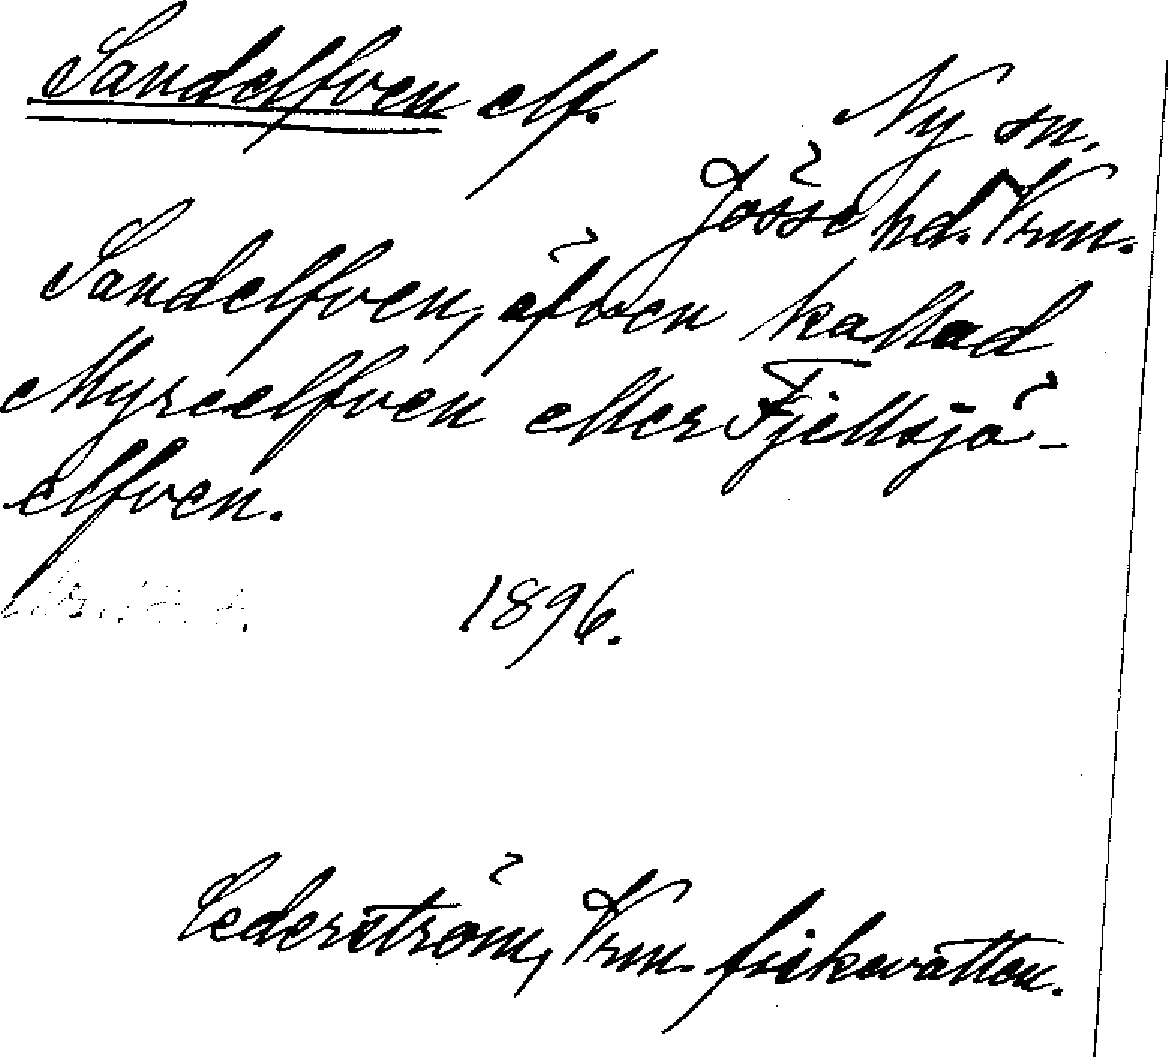 Sandelfven elf.
Ny sn.
Jösse hd. Vrm.
Sandelfven, äfven kallad
Myrcelfven eller Fjellsjö-
elfven.
1896.
Cederström, Vrm. fiskevatten.